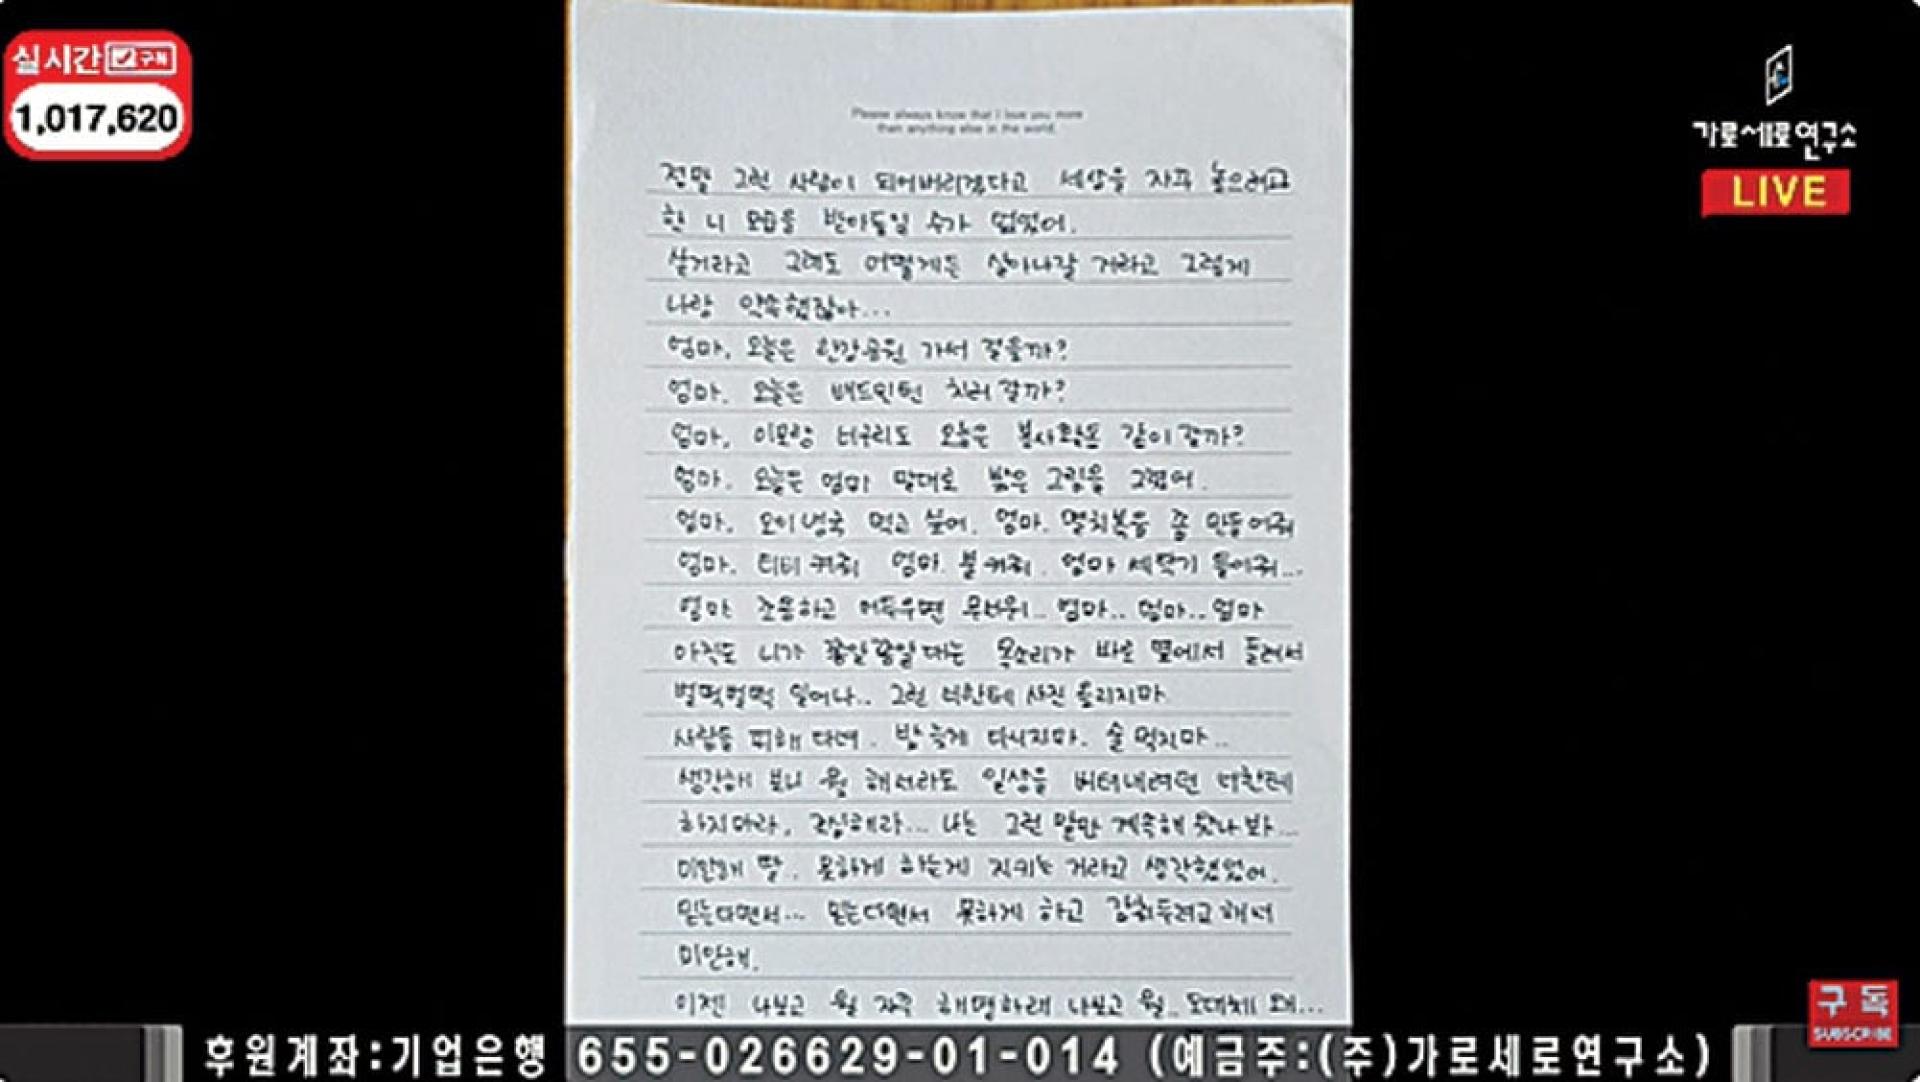 실시간 구독
1,017,620
가로세로연구소
LIVE
Please always know that I love you more
than anything else in the world.
정말 그런 사람이 되어버리겠다고 세상을 자꾸 놓으려고
한 니 모습을 받아들일 수가 없었어.
살거라고 그래도 어떻게든 살아나갈 거라고 그렇게
나랑 약속했잖아...
엄마, 오늘은 한강공원 가서 걸을까?
엄마, 오늘은 배드민턴 치러갈까?
엄마, 이모랑 너구리도 오늘은 봉사활동 같이갈까?
엄마, 오늘은 엄마 말대로 밝은 그림을 그렸어.
엄마, 오이냉국 먹고 싶어. 엄마. 멸치볶음 좀 만들어줘
엄마. 티비켜줘 엄마. 불켜줘. 엄마 세탁기 돌려줘...
엄마 조용하고 어두우면 무서워.. 엄마.. 엄마.. 엄마
아직도 니가 쫑알쫑알대는 목소리가 바로 옆에서 들려서
벌떡벌떡 일어나.. 그런 너한테 사진 올리지마
사람들 피해 다녀. 밤 늦게 다니지마. 술 먹지마..
생각해 보니 뭘 해서라도 일상을 버텨내려던 너한테
하지마라, 조심해라... 나는 그런 말만 계속해 왔나봐...
미안해 딸. 못하게 하는게 지키는 거라고 생각했었어.
믿는다면서... 믿는다면서 못하게 하고 감춰두려고해서
미안해.
이젠 나보고 뭘 자꾸 해명하래 나보고 뭘.. 도대체 왜...
구독
SUBSCRIBE
후원계좌:기업은행 655-026629-01-014 (예금주:(주)가로세로연구소)